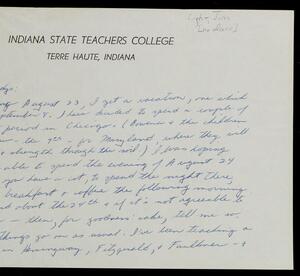 INDIANA STATE TEACHERS COLLEGE
TERRE HAUTE, INDIANA
August 23, I get a vacation, one which
8. I have decided to spend a couple of
period in Chicago. (Rowena & the children
the 9th - for Maryland, where they will
strength through the soil) I was hoping
able to spend the evening of August 24
you have a cot, to spend the night there,
breakfast & office the following morning
about the 24th & if it's not agreeable to
- then, for goodness sake, tell me so.
things go on as usual. I've been teaching a
in Hemingway, Fitzgerald, & Faulkner - &